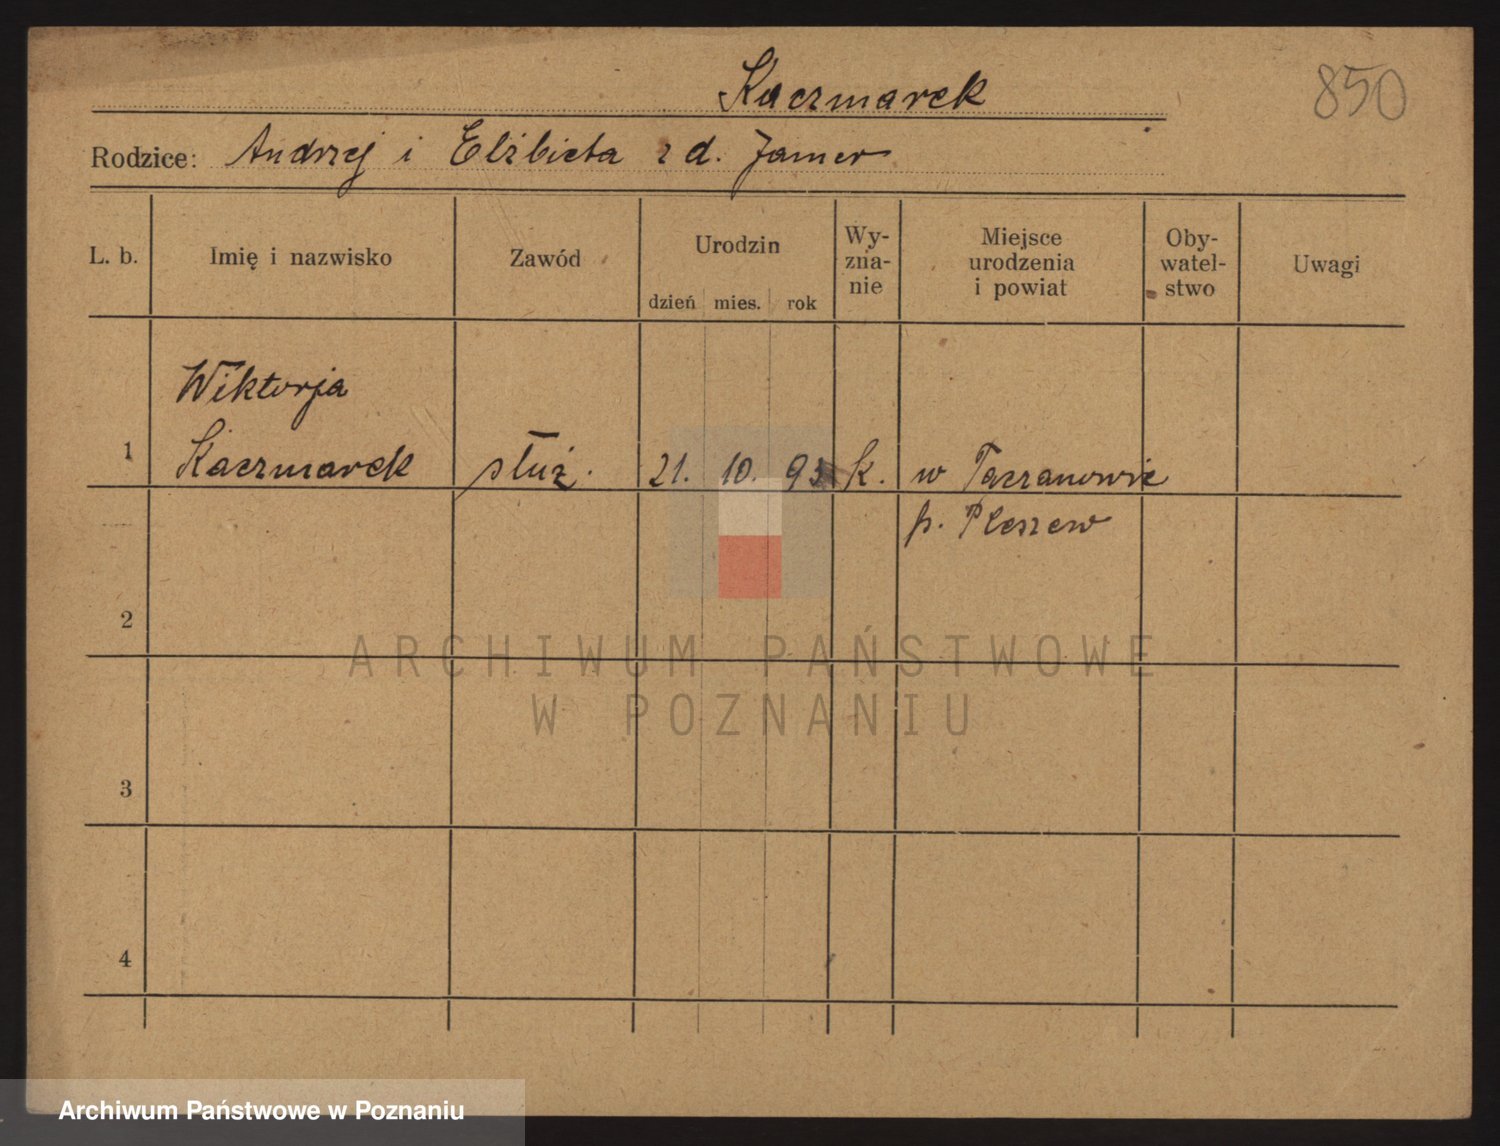 Kaczmarek
850
Rodzice: Andrzej i Elżbieta z d. Jamer
L. b.
Imię i nazwisko
Zawód
Urodzin
dzień mies. rok
Wy-
zna-
nie
Miejsce
urodzenia
i powiat
Oby-
watel-
stwo
Uwagi
Wiktorja
1 Kaczmarek służ. 21. 10. 93 k. w Taczanowie
p. Pleszew
2
3
4
ARCHIWUM PAŃSTWOWE
W POZNANIU
Archiwum Państwowe w Poznaniu